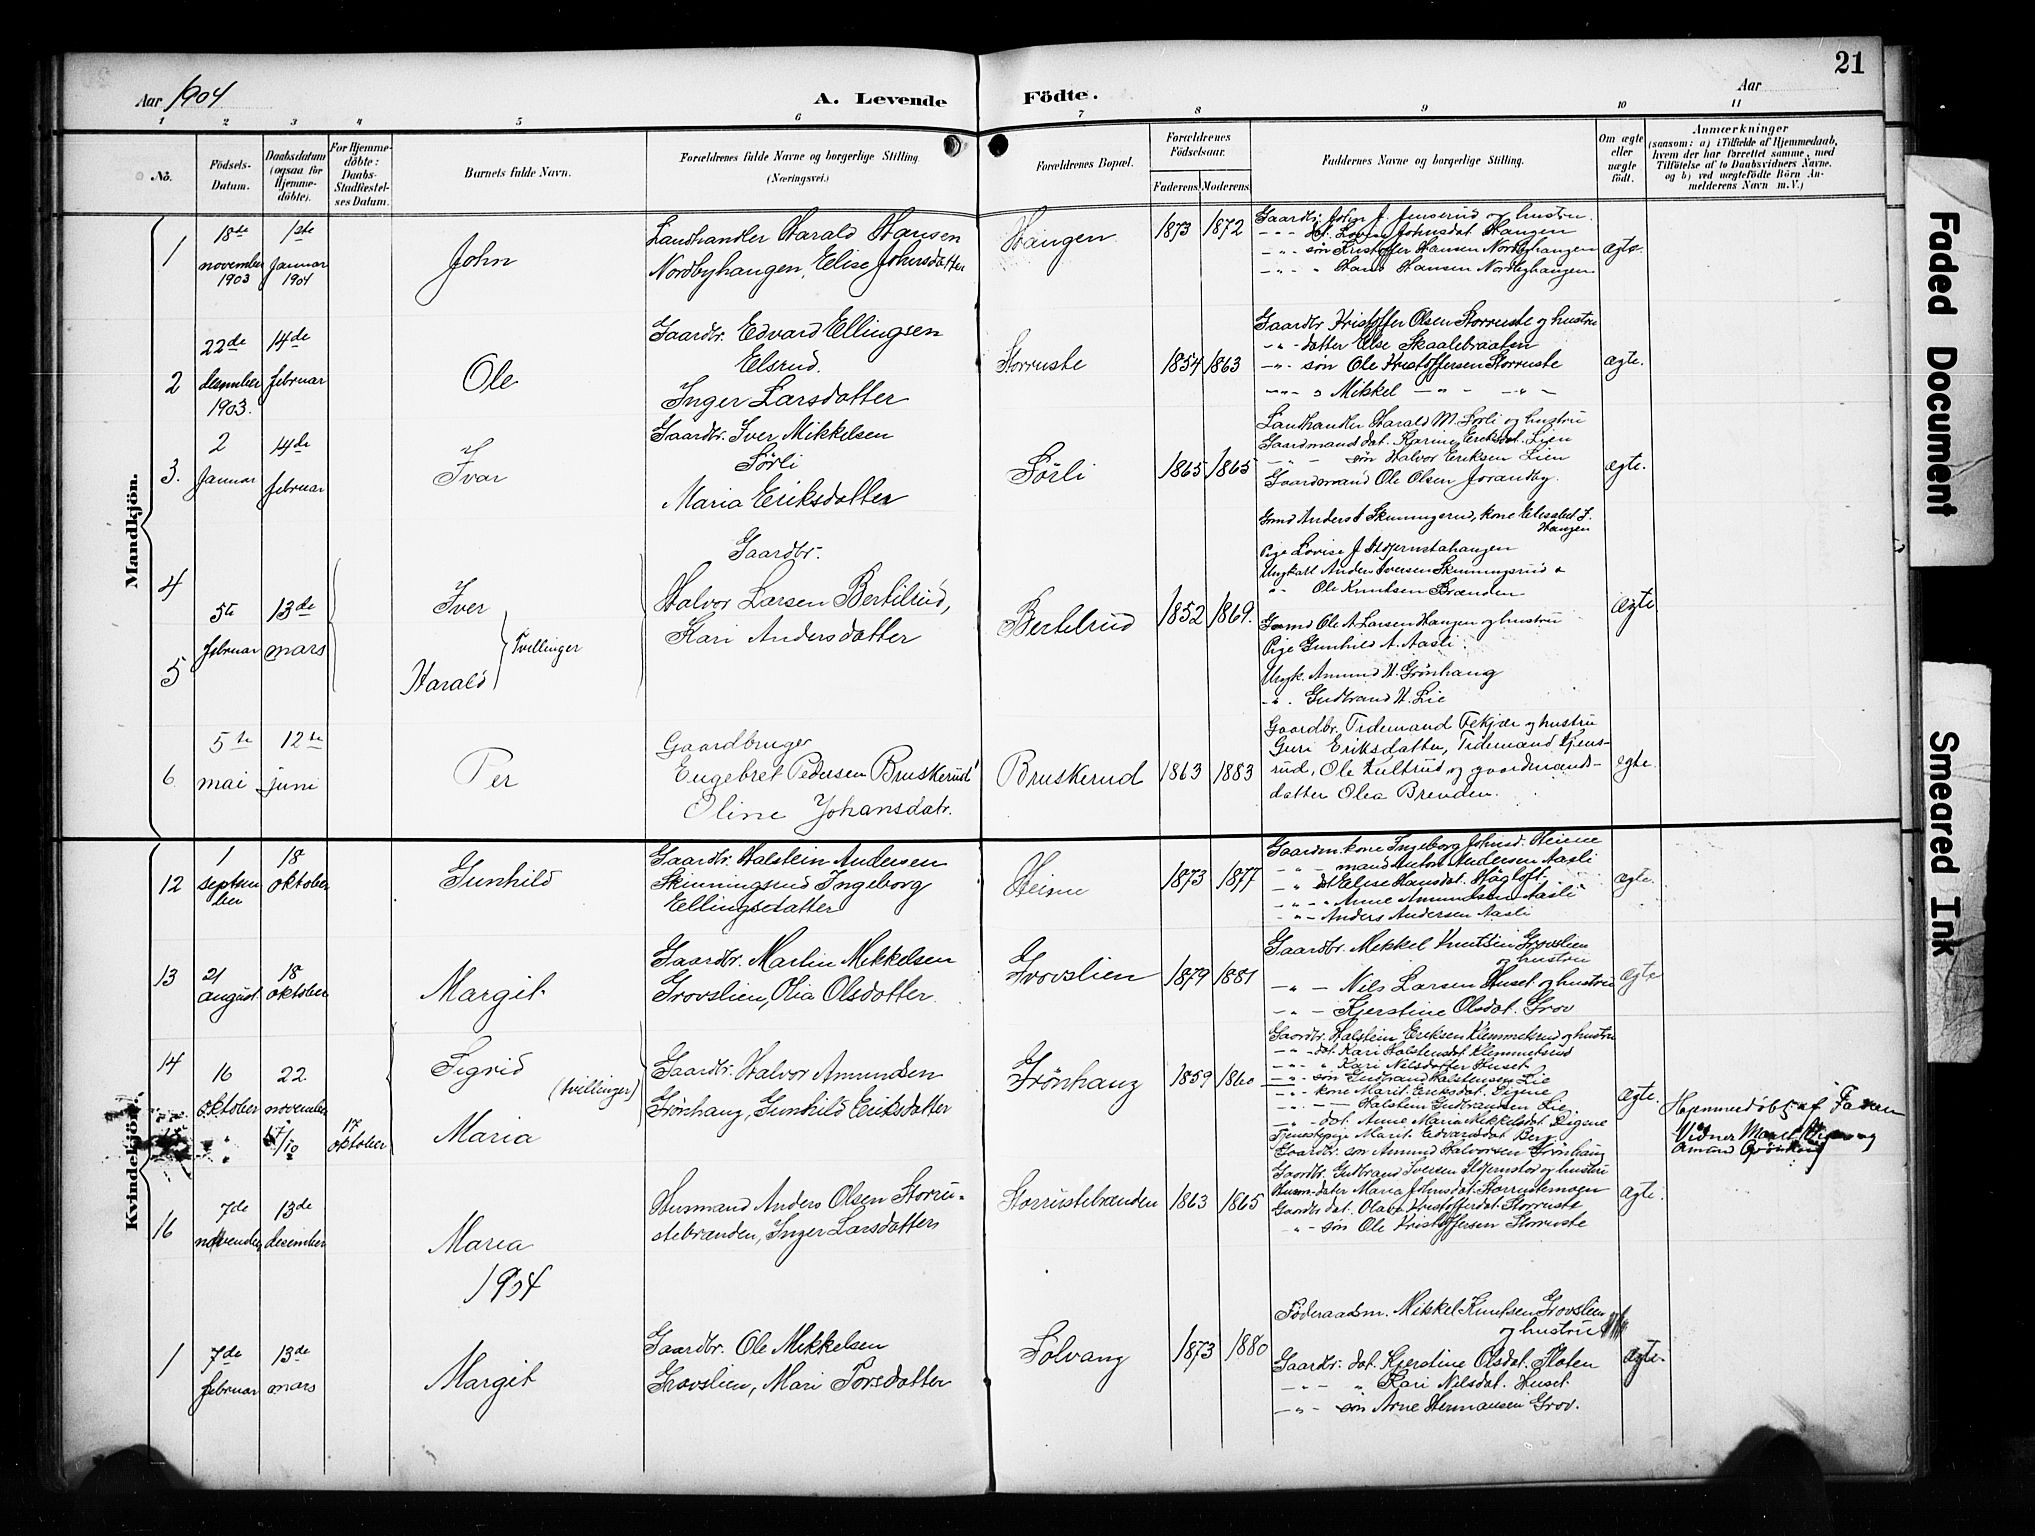 21
Aar 1904
A. Levende Födte.
Aar
1 2 3 4 5 6 7 8 9 10 11
No.
Födsels-Datum.
Daabsdatum (ogsaa for Hjemme-döbte).
For Hjemme-döbte: Daabs-Stadfæstel-ses Datum.
Barnets fulde Navn.
Forældrenes fulde Navne og borgerlige Stilling.
(Næringsvei.)
Forældrenes Bopæl.
Forældrenes Födselsaar.
Faderens Moderens
Faddernes Navne og borgerlige Stilling.
Om ægte eller uægte födt.
Anmærkninger
(saasom: a) i Tilfælde af Hjemmedaab,
hvem der har forrettet samme, med
Tilföielse af to Daabsvidners Navne,
og b) ved uægtefödte Börn An-
melderens Navn m. V.)
Mandkjön.
1
18de november 1903
1ste Januar 1904
John
Landhandler Harald Hansen
Nordbyhaugen, Elise Johnsdatter
Haugen
1873 1872
Gaardbr. John J. Jenserud og hustru
— " — dat. Lovise Johnsdat. Haugen
— " — søn Kristoffer Hansen Nordbyhaugen
— " — " Hans Hansen Nordbyhaugen
ægte
2
22de desember 1903.
14de februar
Ole
Gaardbr. Edvard Ellingsen
Elsrud.
Inger Larsdatter
Storruste
1854 1863
Gaardbr Kristoffer Olsen Storruste og hustru
— " — datter Else Skaalebraaten
— " — søn Ole Kristoffersen Storruste
— " — " Mikkel — " — — " —
ægte.
3.
2 Januar
14de februar
Ivar
Gaardbr. Iver Mikkelsen
Sørli
Maria Eriksdatter
Sørli
1865 1865
Landhandler Harald M. Sørli og hustru
Gaardmands dat. Karine Eriksdat. Lien
— " — søn Halvor Eriksen Lien
Gaardmand Ole Olsen Jorandby.
ægte.
4
5
5te februar
13de mars
Iver
Harald
Tvillinger
Gaardbr.
Halvor Larsen Bertilrud,
Kari Andersdatter
Bertilrud
1852 1869.
Gmd Anders I Skinningsrud, kone Elisabet J.
Haugen
Pige Lovise J Stjernstahaugen
Ungkarl Anders Iversen Skinningsrud
" Ole Knutsen Brænden
Gaamd Ole A Larsen Haugen og hustru
Pige Gunhild A. Aasli
Ungk. Amund H. Grönhaug
— " Gudbrand H. Lie
ægte
6
5te mai
12te juni
Per
Gaardbruger
Engebret Pedersen Bruskerud
Oline Johansdatr.
Bruskerud
1863 1883
Gaardbr. Tidemand Fekjær og hustru
Guri Eriksdatter, Tidemand Kjens-
rud, Ole Kultrud og gaardmands-
datter Olea Brenden.
ægte.
Kvindekjön.
12
1 september
18 oktober
Gunhild
Gaardbr. Halstein Andersen
Skinningsrud Ingeborg
Ellingsdatter
Heime
1873 1877
Gaardm. kone Ingeborg Johnsd. Heiene
" — mand Anton Andersen Aasli
— " dat Elise Hansdat. Högloft
— " — " Anne Amundsen Aasli
— " — Anders Andersen Aasli
ægte.
13
21 august
18 oktober
Margit
Gaardbr. Martin Mikkelsen
Grovslien, Olia Olsdatter
Grovslien
1879 1881
Gaardbr. Mikkel Knutsen Grovslien
og hustru
— " — Nils Larsen Huset og hustru
— " — Kjerstine Olsdat. Grov
ægte
14
16 oktober
22 november
Sigrid
(tvillinger)
Gaardbr. Halvor Amundsen
Grönhaug, Gunhild Eriksdatter
Grönhaug
1859 1860
15
" "
17/10
17 oktober
Maria
Gaardbr. Halstein Eriksen Klemmetsrud og hustru
— " — dat. Kari Halstensdat. Klemmetsrud
— " — " Kari Nilsdatter Huset
— " — søn Gudbrand Halstensen Lie
— " — kone Marit Eriksdat. Digene
— " — Halstein Gudbransen Lie
— " — dat. Anne Maria Mikkelsdat. Digene
Tjenestepige Marit Edvardsdat Berg
Gaardbr. søn Amund Halvorsen Grönhaug
ægte.
Hjemmedöbt af Faren
Vidner
Amund Grönhaug
16
7de november
13de desember
Maria
Husmand Anders Olsen Storru-
stebrænden, Inger Larsdatter
Storrustebrænden
1863 1865
Gaardbr. Gudbrand Iversen Stjernstad og hustru
Husm-dater Maria Johnsdat. Storrustemoen
Gaardbr dat. Olava Kristofferdat. Storruste
— " — søn Ole Kristoffersen Storruste
ægte.
1904
1
7de februar
13de mars
Margit
Gaardbr. Ole Mikkelsen
Grovslien, Mari Torsdatter
Solvang
1873 1880
Föderaadsm. Mikkel Knutsen Grovslien
og hustru
Gaardbr. dat. Kjerstine Olsdat. Floten
— " — " Kari Nilsdat. Huset
— " — søn Arne Hermansen Grov.
ægte.
Faded Document
Smeared Ink